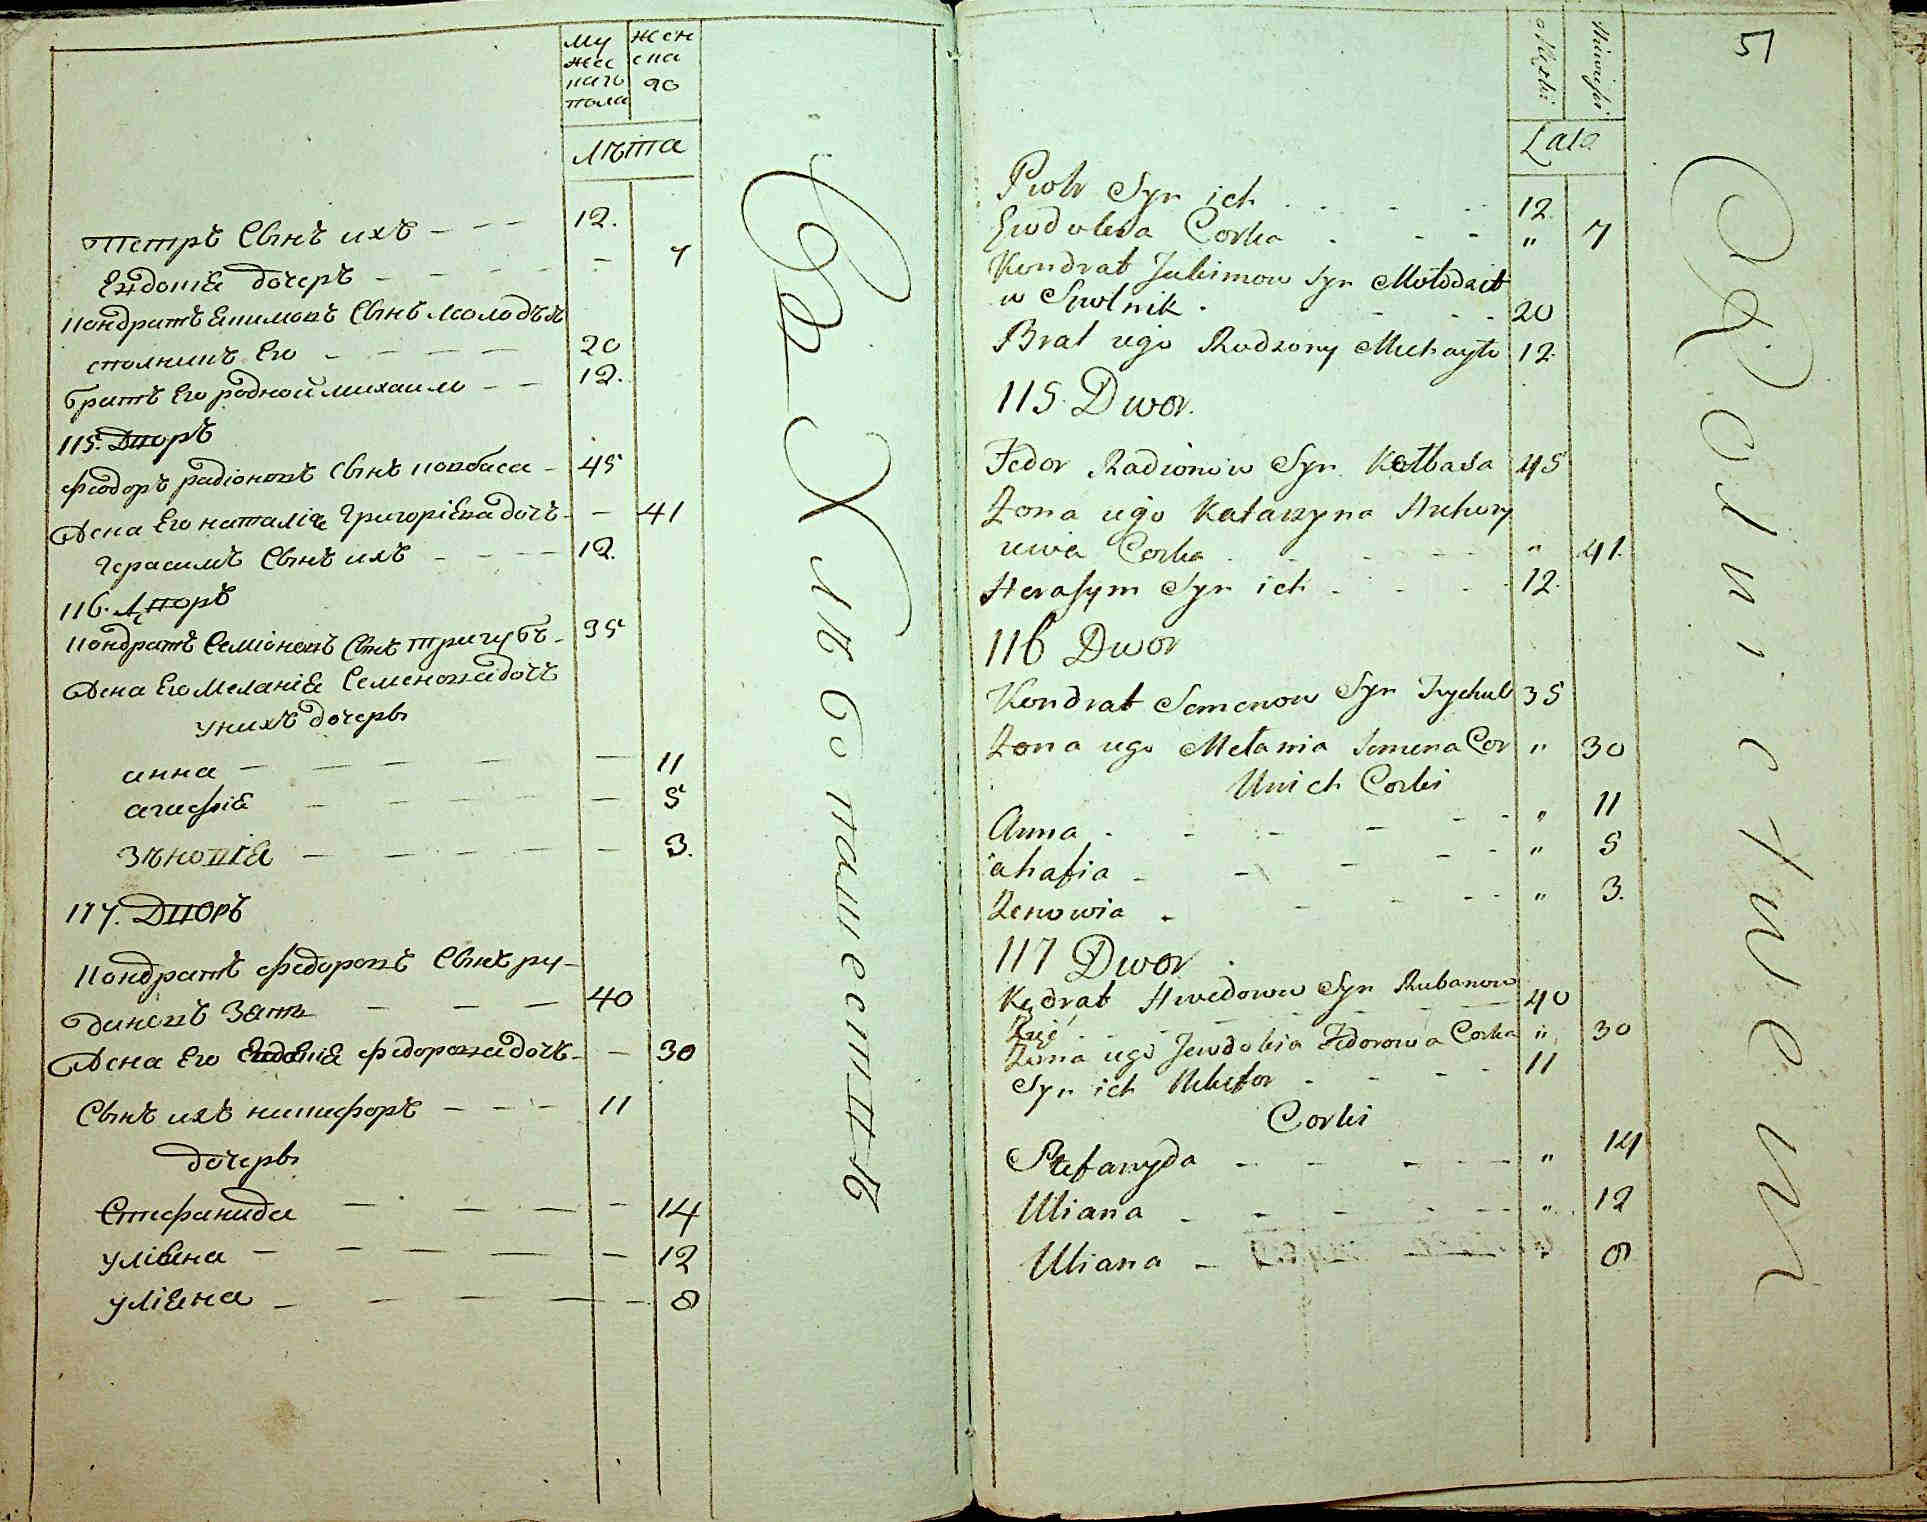 Му жен
жес ска
каго го
пола
лѣта
Петръ Сынъ ихъ - - - 12.
Евдокіѧ дочеръ - - - - - 7
Кондратъ Екимовъ Сынъ Молодъкъ
сполникъ Его - - - - 20
братъ Его родной михаило - - 12.
115. Дворъ
Феодоръ радіоновъ Сынъ ковбаса - 45
Жена Его наталіѧ Григоріева дочъ - - 41
Герасимъ Сынъ ихъ - - - - 12.
116. Дворъ
Кондратъ Семіоновъ Сынъ тригубъ - 35
Жена Его Меланіѧ Семенова дочъ
у нихъ дочеры
анна - - - - - - 11
агафіѧ - - - - - 5
Зѣновіѧ - - - - - - 3.
117. Дворъ
Кондратъ Федоровъ Сынъ ру-
даковъ Зять - - - - 40
Жена Его Евдокіѧ Федорова дочъ - - 30
Сынъ ихъ никифоръ - - - 11
дочеры
Стефанида - - - - - 14
уліѧна - - - - - - 12
уліѧна - - - - - - 8
Се Хлѣбопашествѣ
51
Męzki
Lata
Piotr Syn ich - - - 12.
Ewdokia Corka - - - " 7
Kondrat Jakimow Syn Mołodzik
w Spolnik - - - - 20
Brat iego Rodzony Michayło 12.
115. Dwor.
Fedor Radionow Syn Kołbasa 45
Zona iego Katarzyna Hrehory
iewa Corka - - - - " 41.
Herasym Syn ich - - - - 12.
116 Dwor
Kondrat Semenow Syn Trychub 35
Zona iego Mełania Semena Cor " 30
U nich Corki
Anna - - - - - - " 11
ahafia - - - - - " 5
Zenowia - - - - - " 3.
117 Dwor
Kądrat Hwedorow Syn Rubanow
Zięć - - - - - 40
Zona iego Jewdokia Fedorowa Corka " 30
Syn ich Nikifor - - - - 11
Corki
Stefanyda - - - - - " 14
Uliana - - - - - - " 12
Uliana - " 8
W Rolnictwem